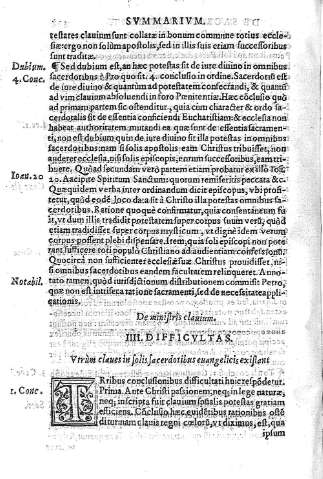 SVMMARIVM.
testates clauium sunt collatæ in bonum commune totius eccle-
siæ: ergo non solùm apostolis, sed in illis suis etiam successoribus
sunt traditæ.
Dubium. ¶ Sed dubium est, an hæc potestas sit de iure diuino in omnibus
4. Conc. sacerdotibus? Pro quo sit. 4. conclusio in ordine. Sacerdotis est
de iure diuino & quantùm ad potestatem consecrandi, & quantũ
ad vim clauium absoluendi in foro Pœnitentiæ. Hæc cõclusio quò
ad primam partem sic ostenditur, quia cùm character & ordo sa-
cerdotalis sit de essentia consciendi Eucharistiam & ecclesia non
habeat authoritatem mutandi ea quæ sunt de essentia sacramen-
ti, non est dubium, quin de iure diuino sit illa potestas in omnibus
sacerdotibus nam si solis apostolis eam Christus tribuisset, non
auderet ecclesia, nisi solis episcopis, eorum successoribus, eam tri-
buere. Quòad secundam verò partem etiam probatur ex illo Ioã.
Ioan. 20 20. Accipite Spiritum Sanctum: quorum remiseritis peccata &c.
Quæ quidem verba inter ordinandum dicit episcopus, vbi profi-
tetur, quòd eodẽ loco data sit à Christo illa potestas omnibus sa-
cerdotibus. Ratione quoque confirmatur, quia consentaneum fu
it, vt dum illis tradidit potestatem super corpus suum verũ, quòd
etiam tradidisset super corpus mysticum, vt dignè idem verum
corpus possent plebi dispensare. Item, quia soli episcopi non pote
rant sufficere toti populo Christiano ad audientiam confessionis.
Quocirca non sufficienter ecclesiæ suæ Christus prouidisset, ni-
si omnibus sacerdotibus eandem facultatem relinqueret. Anno-
Notabil. tato tamen, quòd iurisdictionum distributionem commisit Petro,
quæ non est iustitiæ ratione sacramenti, sed de necessitate appli-
cationis.
De ministris clauium.
IIII. DIFFICVLTAS.
Vtrùm claues in solis sacerdotibus euangelicis existant
1. Conc. TRibus conclusionibus difficultati huic respõdetur.
Prima. Ante Christi passionem, neq; in lege naturæ,
neq; in scripta fuit clauium sensialis potestas gratiam
efficiens. Cõclusio hæc euidẽtibus rationibus ostẽ
ditur nam clauis regni cœlorũ, vt diximus, est, qua
ipsum